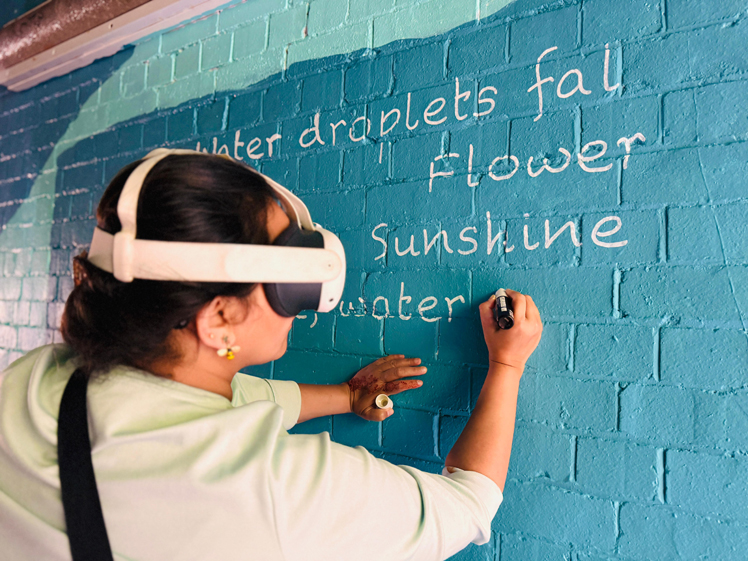 water droplets fal
Flower
Sunshine
, water